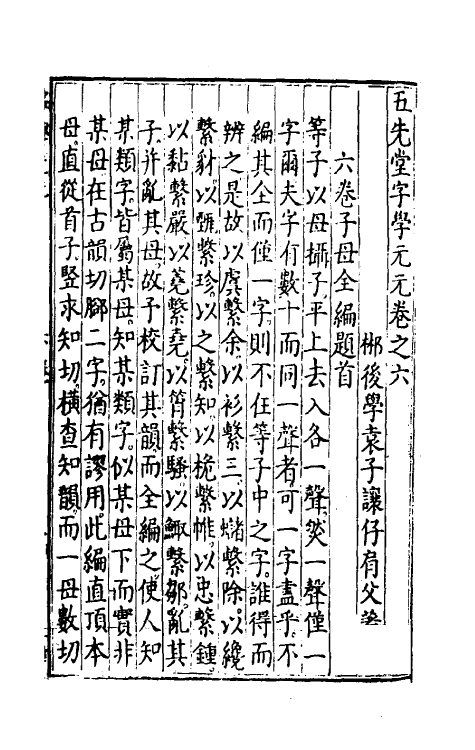 五先堂字學元元卷之六
郴後學袁子讓仔肩父
六卷子母全編題首
等子以母攝子平上去入各一聲然一聲僅一
字爾夫字有數十而同一聲者可一字盡乎不
編其全而僅一字則不在等子中之字誰得而
辨之是故以虞繫余以衫繫三以繫除以纔
繫豺以繫珍以之繫知以桅繫帷以忠繫鍾
以黏繫嚴以蕘繫堯以筲繫騷以鯫繫鄒亂其
子并亂其母故予校訂其韻而全編之使人知
某類字皆屬某母知某類字似某母下而實非
某母在古韻切腳二字猶有謬用此編直頂本
母直從首子竪求知切橫查知韻而一母數切